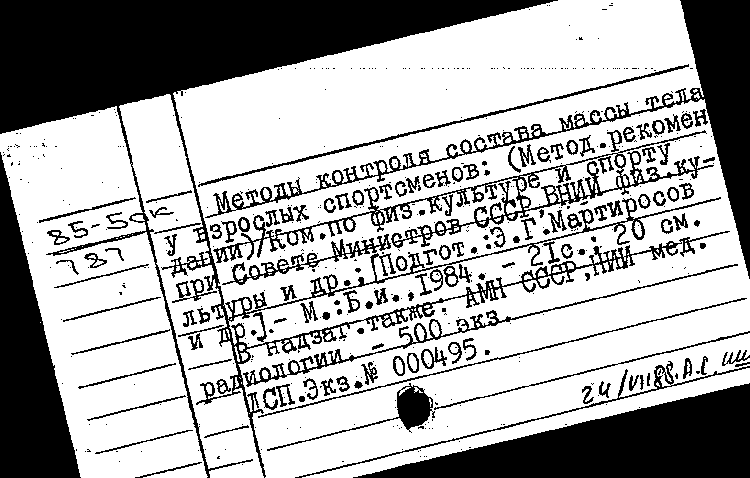 Методы контроля состава массы тела
у взрослых спортсменов: (Метод.рекомен
дации)/Ком.по физ.культуре и спорту
при Совете Министров СССР,ВНИИ физ.ку-
льтуры и др.;/Подгот.:Э.Г.Мартиросов
и др.].- М.:Б.и.,1984. - 21с.; 20 см.
В надзаг.также: АМН СССР,НИИ мед.
радиологии. - 500 экз.
ДСП.Экз.№ 000495.
85-5дк
787
24/VII88.А.С.